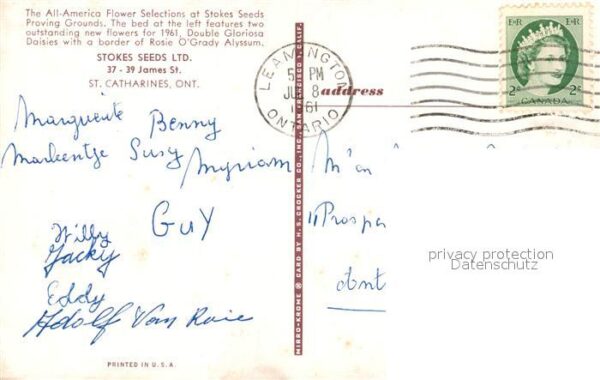 The All-America Flower Selections at Stokes Seeds
Proving Grounds. The bed at the left features two
outstanding new flowers for 1961, Double Gloriosa
Daisies with a border of Rosie O'Grady Alyssum.
STOKES SEEDS LTD.
37 - 39 James St.
ST. CATHARINES, ONT.
Marguerite Benny
Susy Myriam
GUY
Willy
Jacky
Eddy
Adolf Van
PRINTED IN U.S.A.
MIRRO-KROME ® CARD BY H. S. CROCKER CO., INC., SAN FRANCISCO 1, CALIF.
LEAMINGTON
PM
8
61
ONTARIO
address
E II R E II R
2¢ 2¢
CANADA
M'
Prospe
Ont
privacy protection
Datenschutz